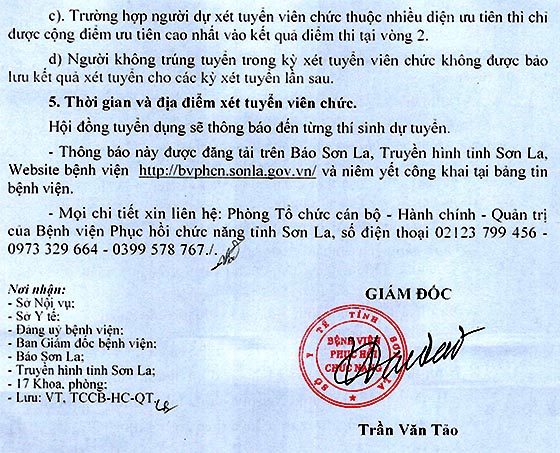 c). Trường hợp người dự xét tuyển viên chức thuộc nhiều diện ưu tiên thì chỉ
được cộng điểm ưu tiên cao nhất vào kết quả điểm thi tại vòng 2.
d) Người không trúng tuyển trong kỳ xét tuyển viên chức không được bảo
lưu kết quả xét tuyển cho các kỳ xét tuyển lần sau.
5. Thời gian và địa điểm xét tuyển viên chức.
Hội đồng tuyển dụng sẽ thông báo đến từng thí sinh dự tuyển.
- Thông báo này được đăng tải trên Báo Sơn La, Truyền hình tỉnh Sơn La,
Website bệnh viện http://bvphcn.sonla.gov.vn/ và niêm yết công khai tại bảng tin
bệnh viện.
- Mọi chi tiết xin liên hệ: Phòng Tổ chức cán bộ - Hành chính - Quản trị
của Bệnh viện Phục hồi chức năng tỉnh Sơn La, số điện thoại 02123 799 456 -
0973 329 664 - 0399 578 767./.
Nơi nhận:
- Sở Nội vụ:
- Sở Y tế:
- Đảng uỷ bệnh viện:
- Ban Giám đốc bệnh viện:
- Báo Sơn La;
- Truyền hình tỉnh Sơn La;
- 17 Khoa, phòng:
- Lưu: VT, TCCB-HC-QT.
GIÁM ĐỐC
SỞ Y TẾ TỈNH SƠN LA
BỆNH VIỆN
PHỤC HỒI
CHỨC NĂNG
Trần Văn Tảo